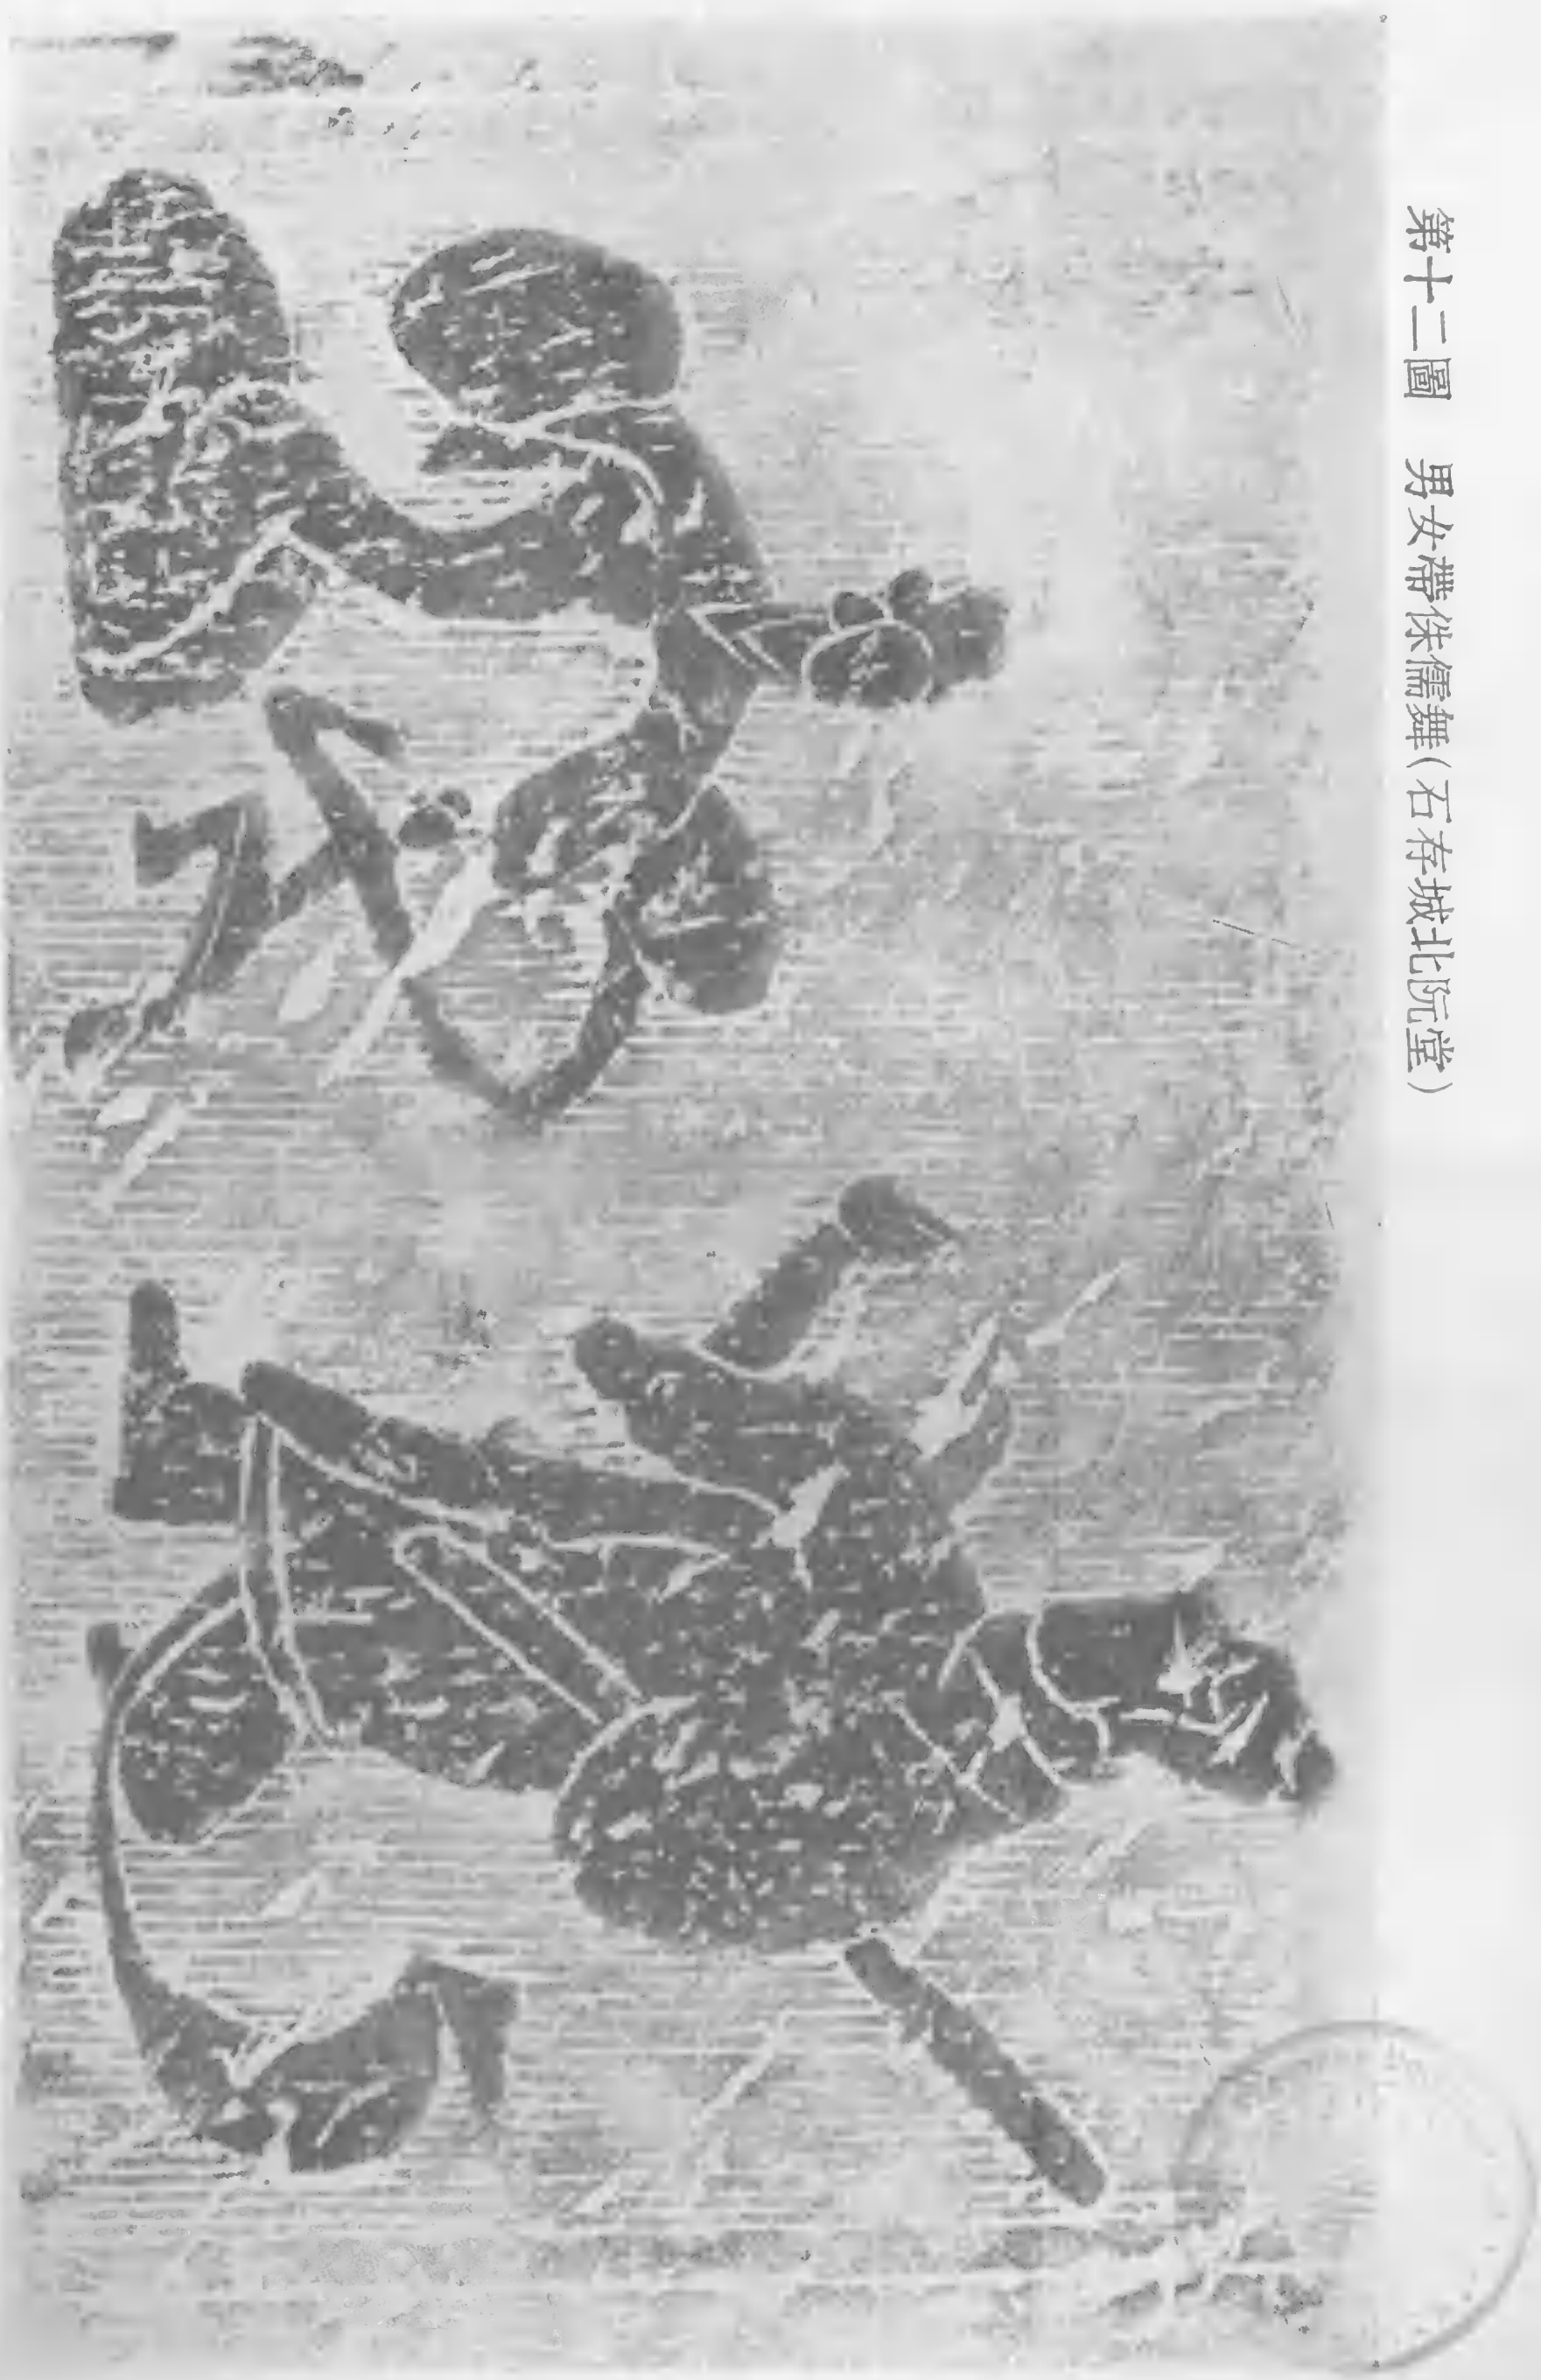 第十二圖　男女帶侏儒舞(石存城北阮堂)